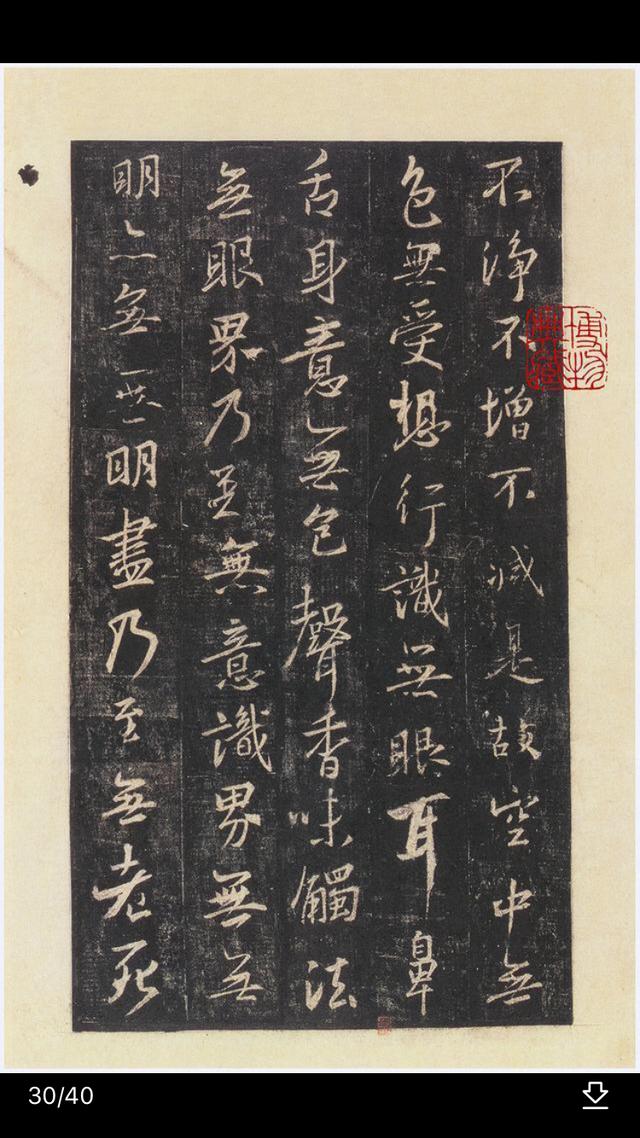 不淨不增不減是故空中無
色無受想行識無眼耳鼻
舌身意無色聲香味觸法
無眼界乃至無意識界無無
明亦無無明盡乃至無老死
博物
30/40